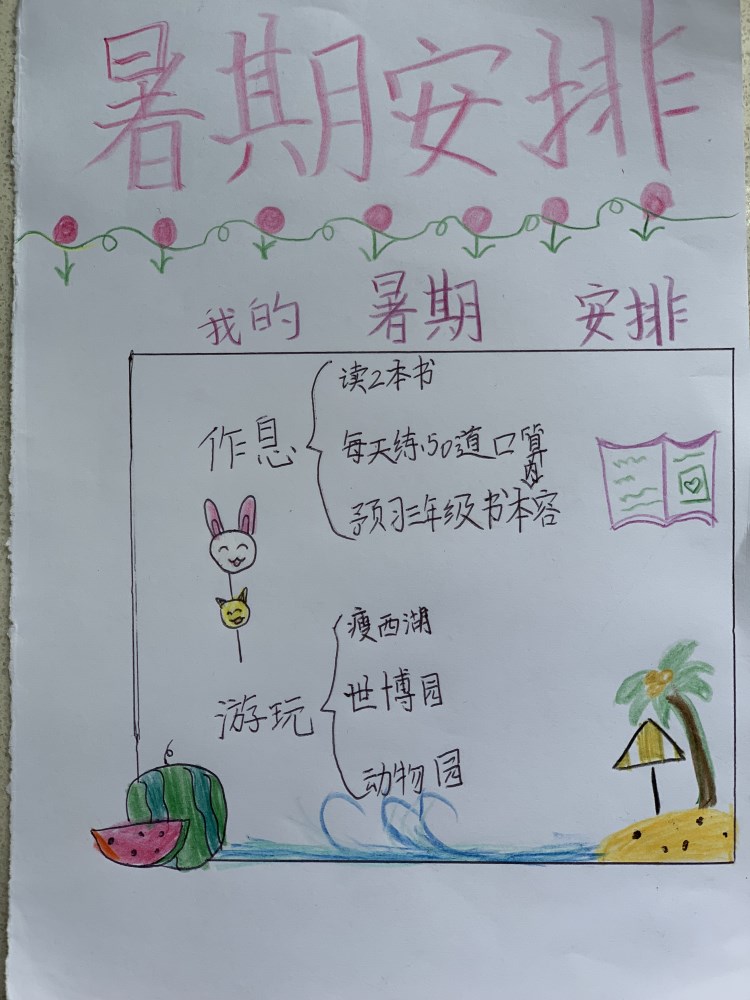 暑期安排
我的 暑期 安排
作息
读2本书
每天练50道口算
预习三年级书本内容
游玩
瘦西湖
世博园
动物园